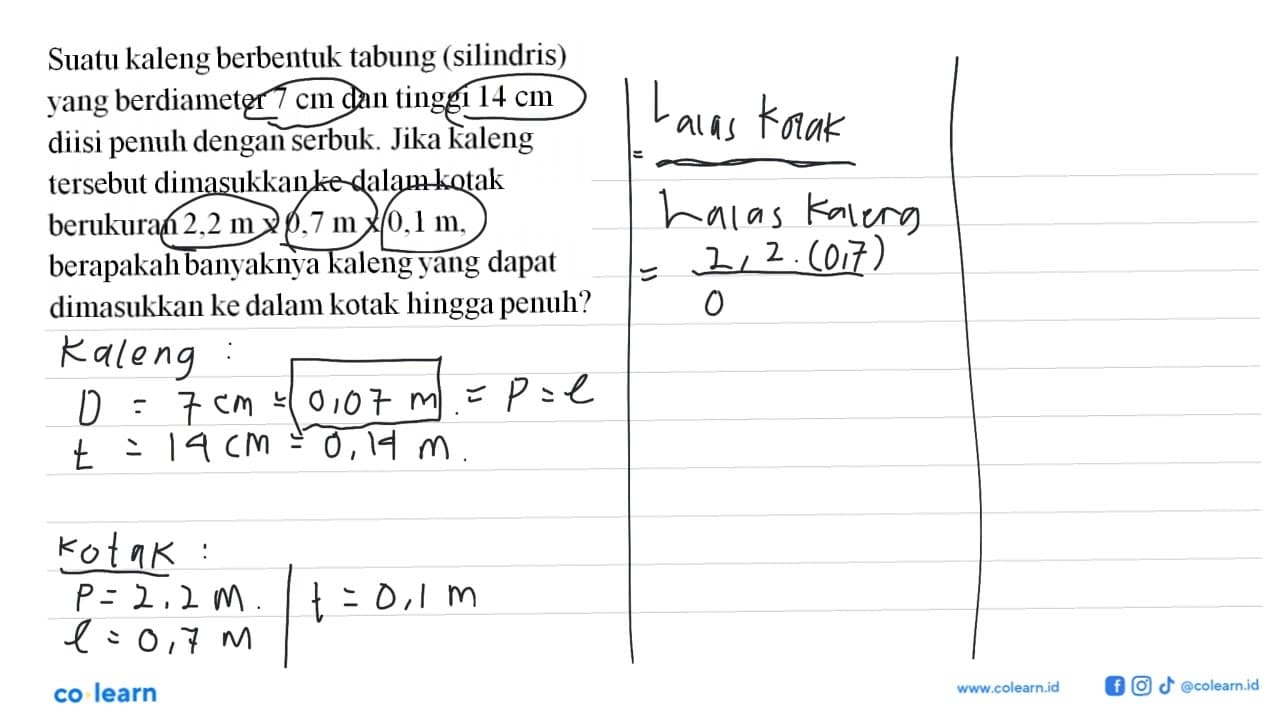 Suatu kaleng berbentuk tabung (silindris)
yang berdiameter 7 cm dan tinggi 14 cm
diisi penuh dengan serbuk. Jika kaleng
tersebut dimasukkan ke dalam kotak
berukuran 2,2 m x 0,7 m x 0,1 m,
berapakah banyaknya kaleng yang dapat
dimasukkan ke dalam kotak hingga penuh?
Kaleng :
D = 7 cm = 0,07 m = P = l
t = 14 cm = 0,14 m.
Kotak :
P = 2,2 m. t = 0,1 m
l = 0,7 m
= Lalas Kotak
Lalas Kaleng
= 2,2.(0,7)
0
co learn
www.colearn.id @colearn.id